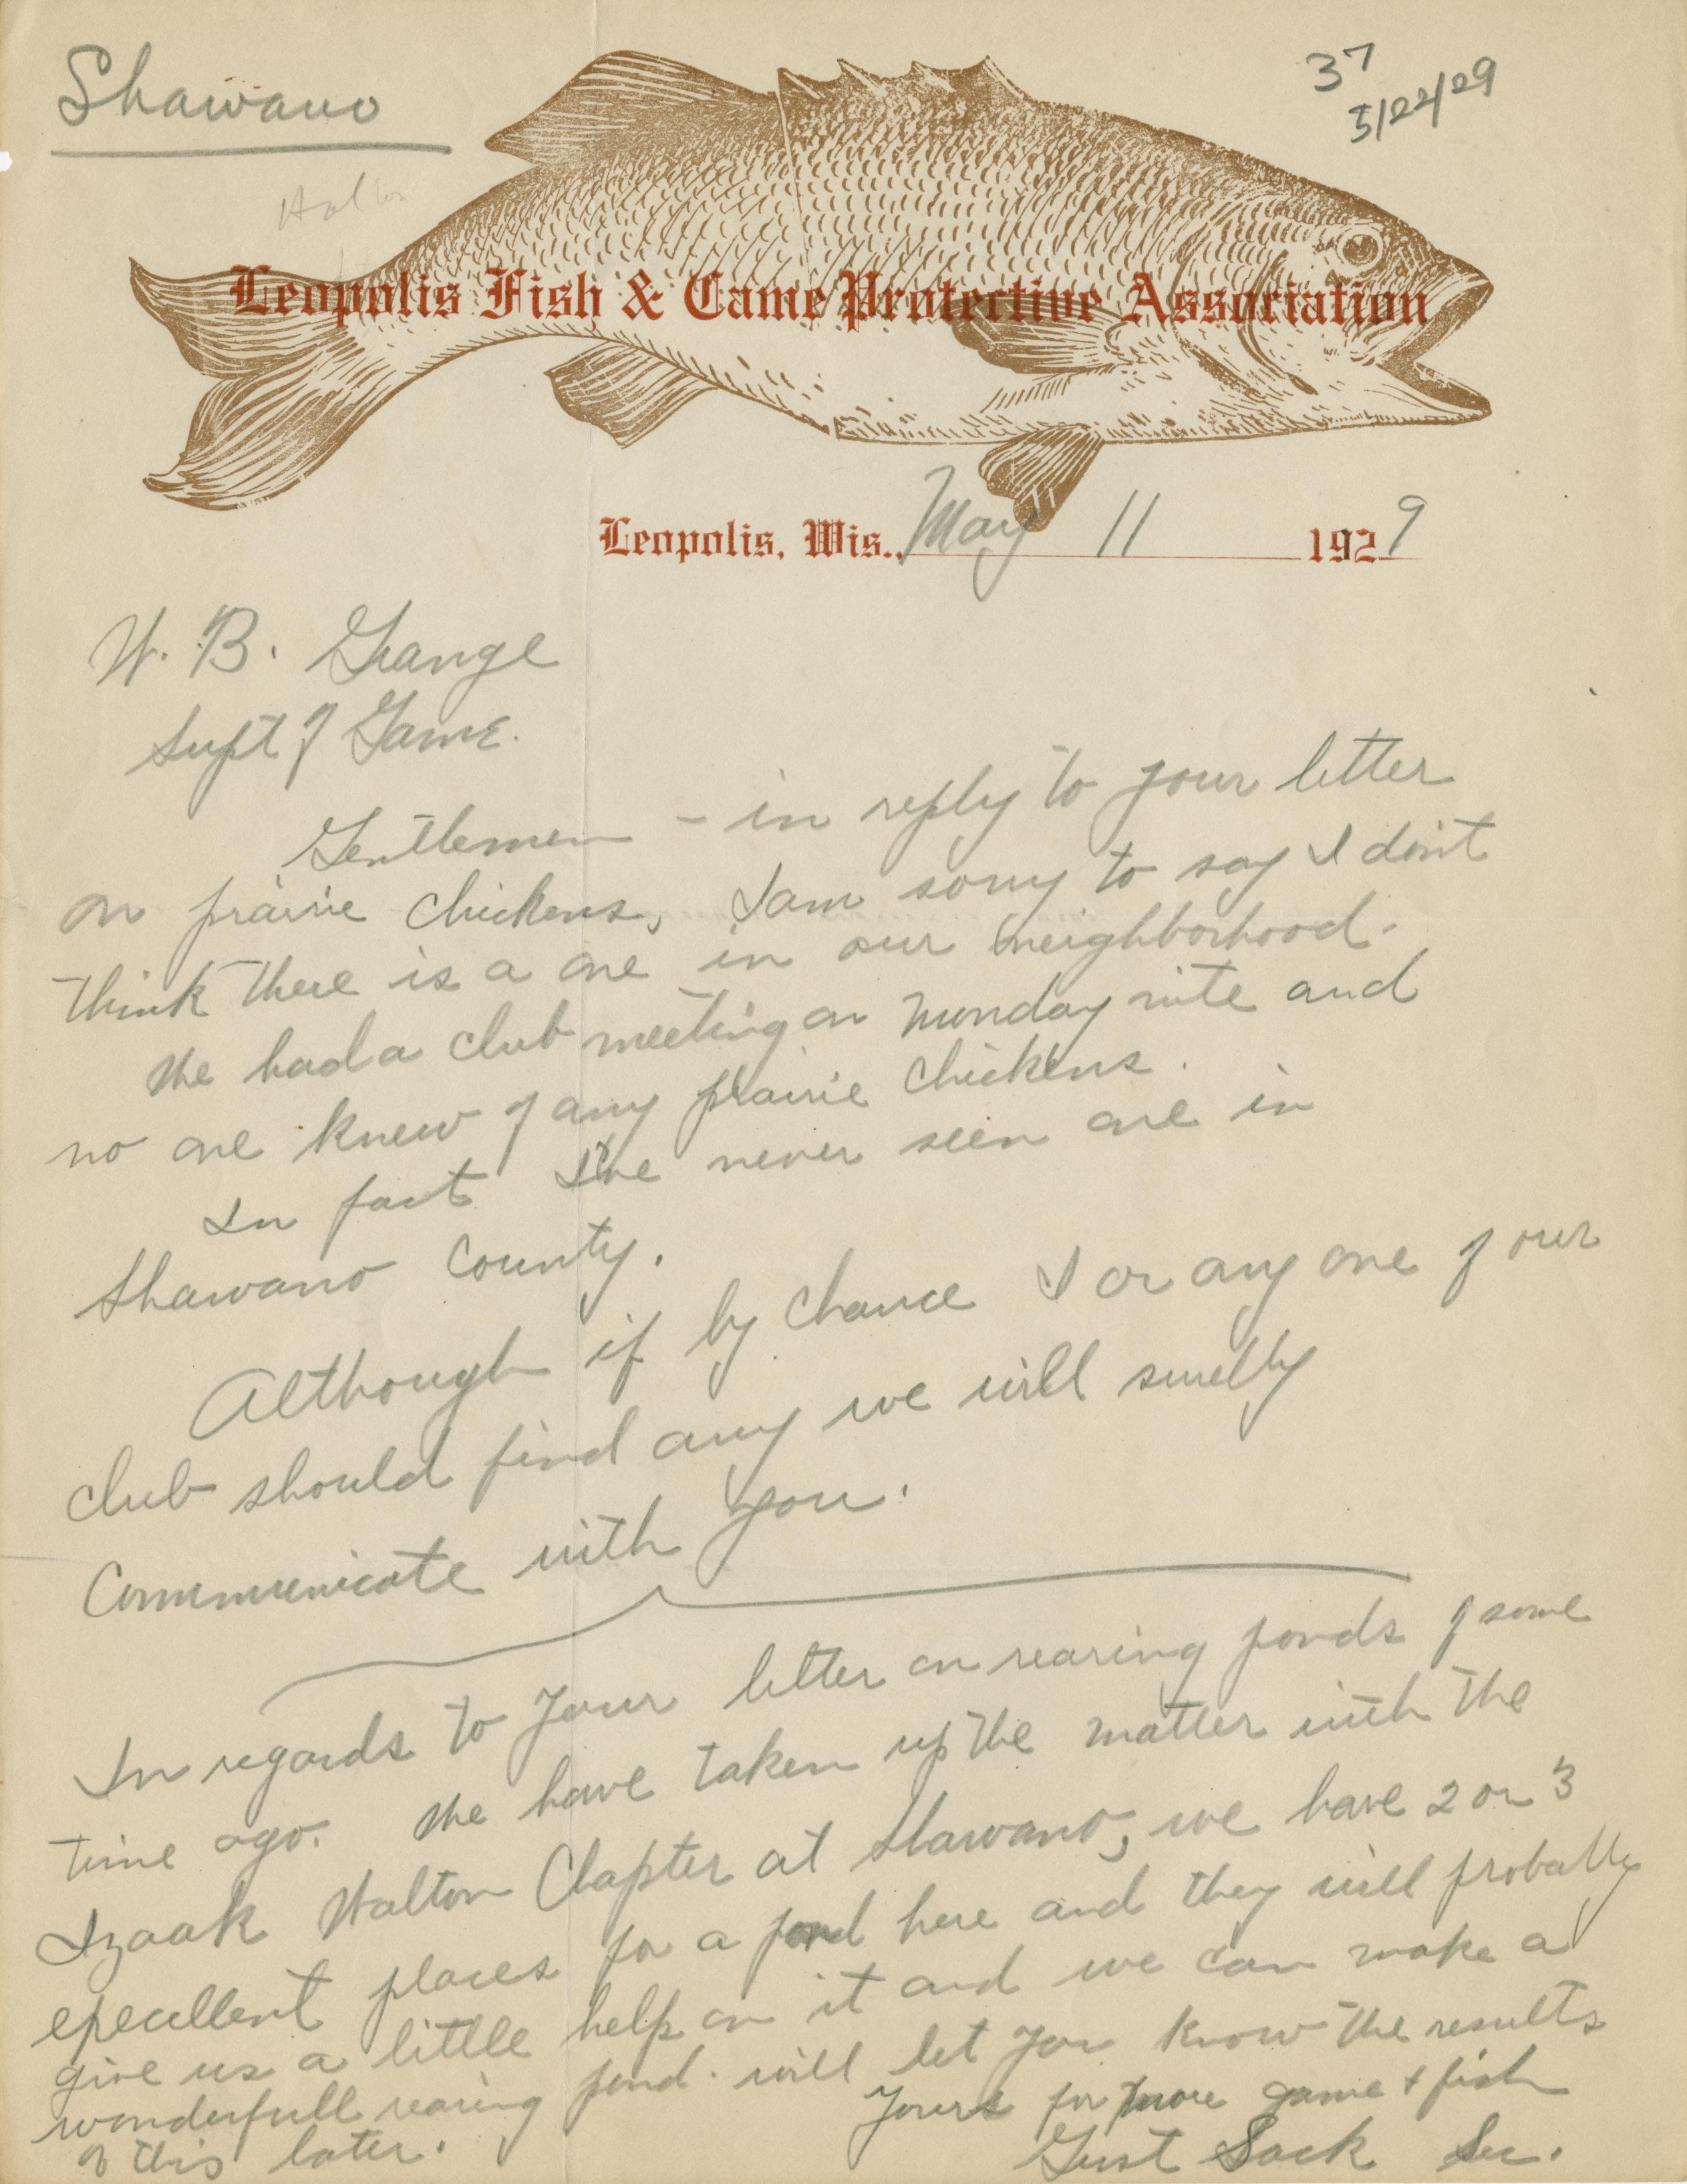 Shawano
37
5/22/29
Leopolis Fish & Game Protective Association
Leopolis, Wis., May 11 1929
W. B. Grange
Supt of Game.
Gentlemen - in reply to your letter
on prairie chickens, I am sorry to say I don't
think there is a one in our neighborhood.
We had a club meeting on Monday nite and
no one knew of any prairie chickens.
In fact I've never seen one in
Shawano County.
Although if by chance I or any one of our
club should find any we will surelly
communicate with you.
In regards to your letter on rearing ponds of some
time ago. We have taken up the matter with the
Izaak Walton Chapter at Shawano, we have 2 or 3
excellent places for a pond here and they will probally
give us a little help on it and we can make a
wonderfull rearing pond. will let you know the results
of this later.
Yours for more game & fish
Gust Sack Sec.